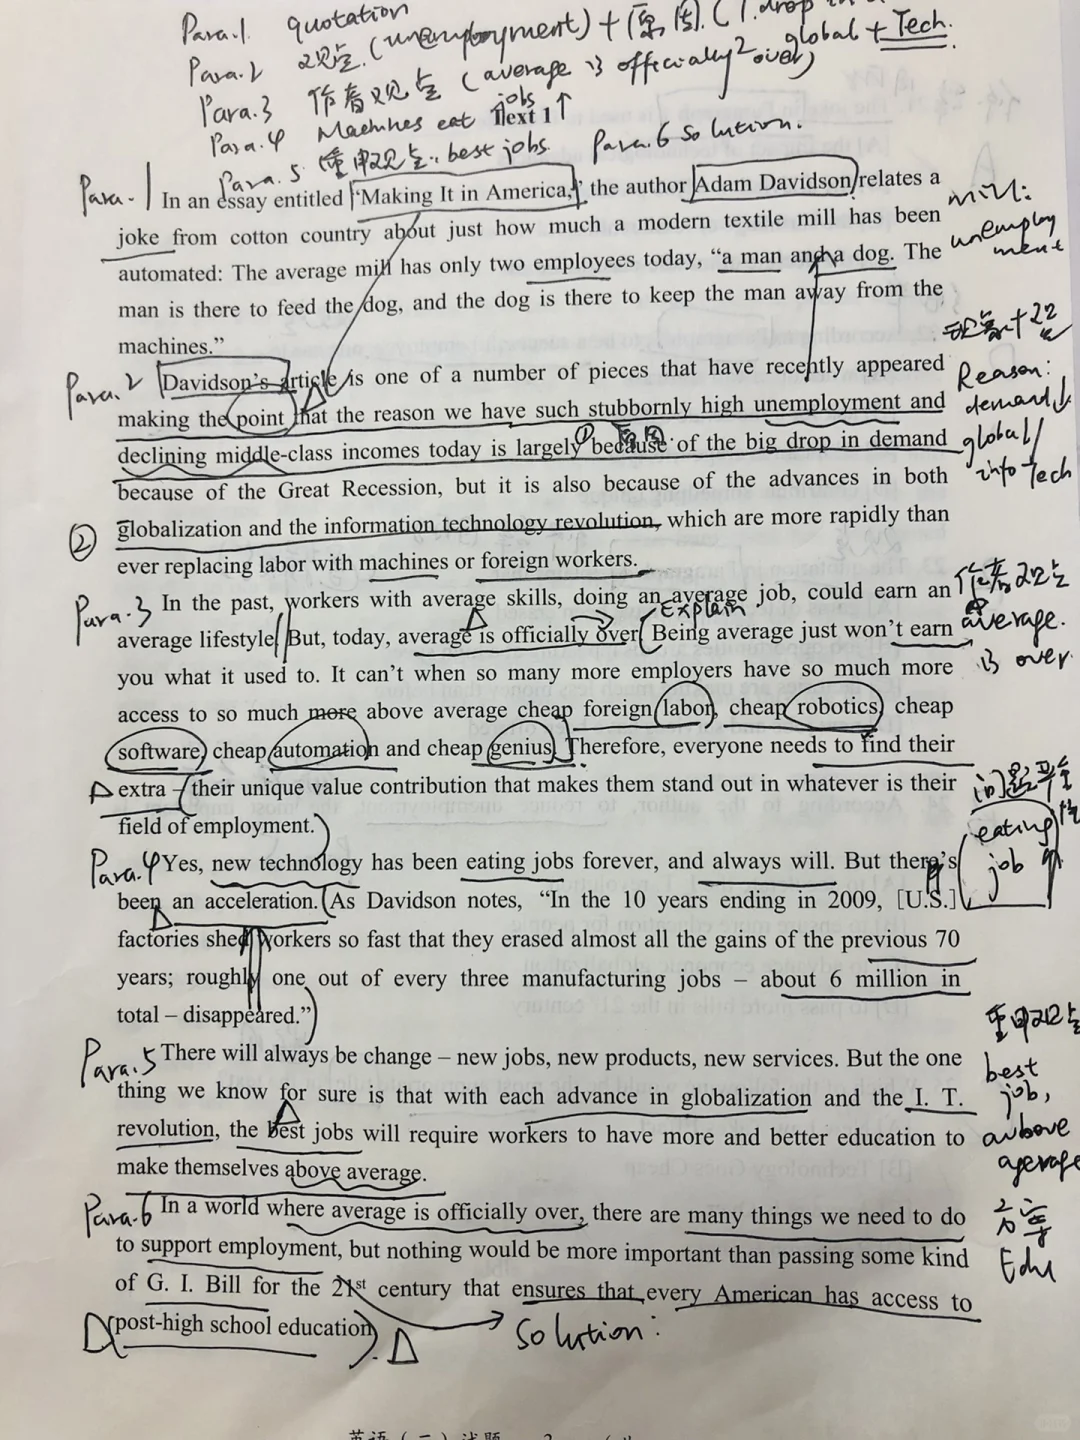 Para.1 quotation
Para.2 观点.(unemployment)+原因.(1.drop in
2 global + Tech.
Para.3 作者观点 (average is officially over)
Para.4 Machines eat jobs ↑
Text 1
Para.5. 重申观点.. best jobs. Para.6 solution.
Para.1 In an essay entitled “Making It in America,” the author Adam Davidson relates a
joke from cotton country about just how much a modern textile mill has been
automated: The average mill has only two employees today, “a man and a dog. The
man is there to feed the dog, and the dog is there to keep the man away from the
machines.”
mill:
unemploy
ment
Para.2 Davidson's article is one of a number of pieces that have recently appeared
making the point that the reason we have such stubbornly high unemployment and
declining middle-class incomes today is largely because of the big drop in demand
because of the Great Recession, but it is also because of the advances in both
② globalization and the information technology revolution, which are more rapidly than
ever replacing labor with machines or foreign workers.
① 原因.
Reason:
demand↓
global/
info Tech
Para.3 In the past, workers with average skills, doing an average job, could earn an
average lifestyle. But, today, average is officially over. Being average just won't earn
you what it used to. It can't when so many more employers have so much more
access to so much more above average cheap foreign labor, cheap robotics, cheap
software, cheap automation and cheap genius. Therefore, everyone needs to find their
extra – their unique value contribution that makes them stand out in whatever is their
field of employment.
Explain
作者观点
average.
is over.
Para.4 Yes, new technology has been eating jobs forever, and always will. But there's
been an acceleration. As Davidson notes, “In the 10 years ending in 2009, [U.S.]
factories shed workers so fast that they erased almost all the gains of the previous 70
years; roughly one out of every three manufacturing jobs – about 6 million in
total – disappeared.”
问题严重性
eating
job ↑
Para.5 There will always be change – new jobs, new products, new services. But the one
thing we know for sure is that with each advance in globalization and the I. T.
revolution, the best jobs will require workers to have more and better education to
make themselves above average.
重申观点
best
job,
Para.6 In a world where average is officially over, there are many things we need to do
to support employment, but nothing would be more important than passing some kind
of G. I. Bill for the 21st century that ensures that every American has access to
post-high school education.
Edu
solution:
英语(二)试题